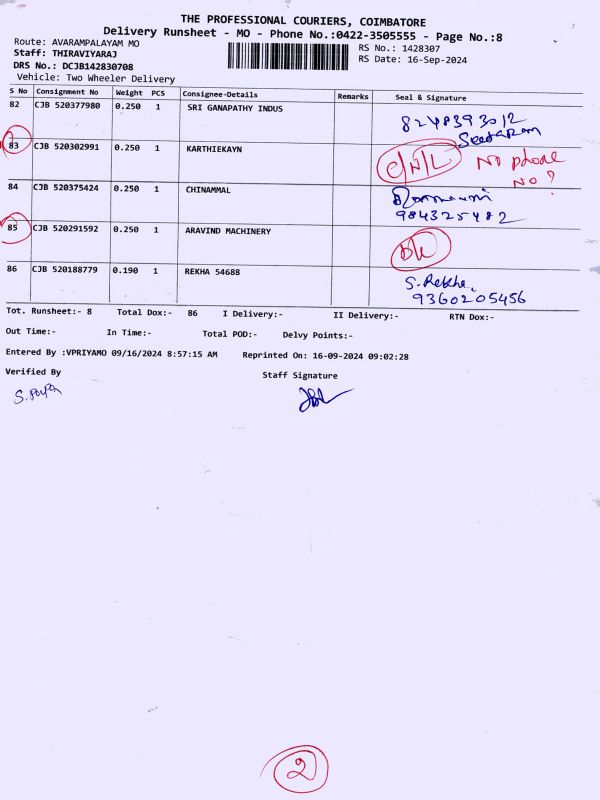 THE PROFESSIONAL COURIERS, COIMBATORE
Delivery Runsheet - MO - Phone No.:0422-3505555 - Page No.:8
Route: AVARAMPALAYAM MO
RS No.: 1428307
Staff: THIRAVIYARAJ
RS Date: 16-Sep-2024
DRS No.: DCJB142830708
Vehicle: Two Wheeler Delivery
S No Consignment No Weight PCS Consignee-Details Remarks Seal & Signature
82 CJB 520377980 0.250 1 SRI GANAPATHY INDUS 8248393012
Seetaram
83 CJB 520302991 0.250 1 KARTHIEKAYN C/N/L No phone
No?
84 CJB 520375424 0.250 1 CHINAMMAL
984325482
85 CJB 520291592 0.250 1 ARAVIND MACHINERY
86 CJB 520188779 0.190 1 REKHA 54688 S. Rekha,
9360205456
Tot. Runsheet:- 8 Total Dox:- 86 I Delivery:- II Delivery:- RTN Dox:-
Out Time:- In Time:- Total POD:- Delvy Points:-
Entered By :VPRIYAMO 09/16/2024 8:57:15 AM Reprinted On: 16-09-2024 09:02:28
Verified By Staff Signature
2